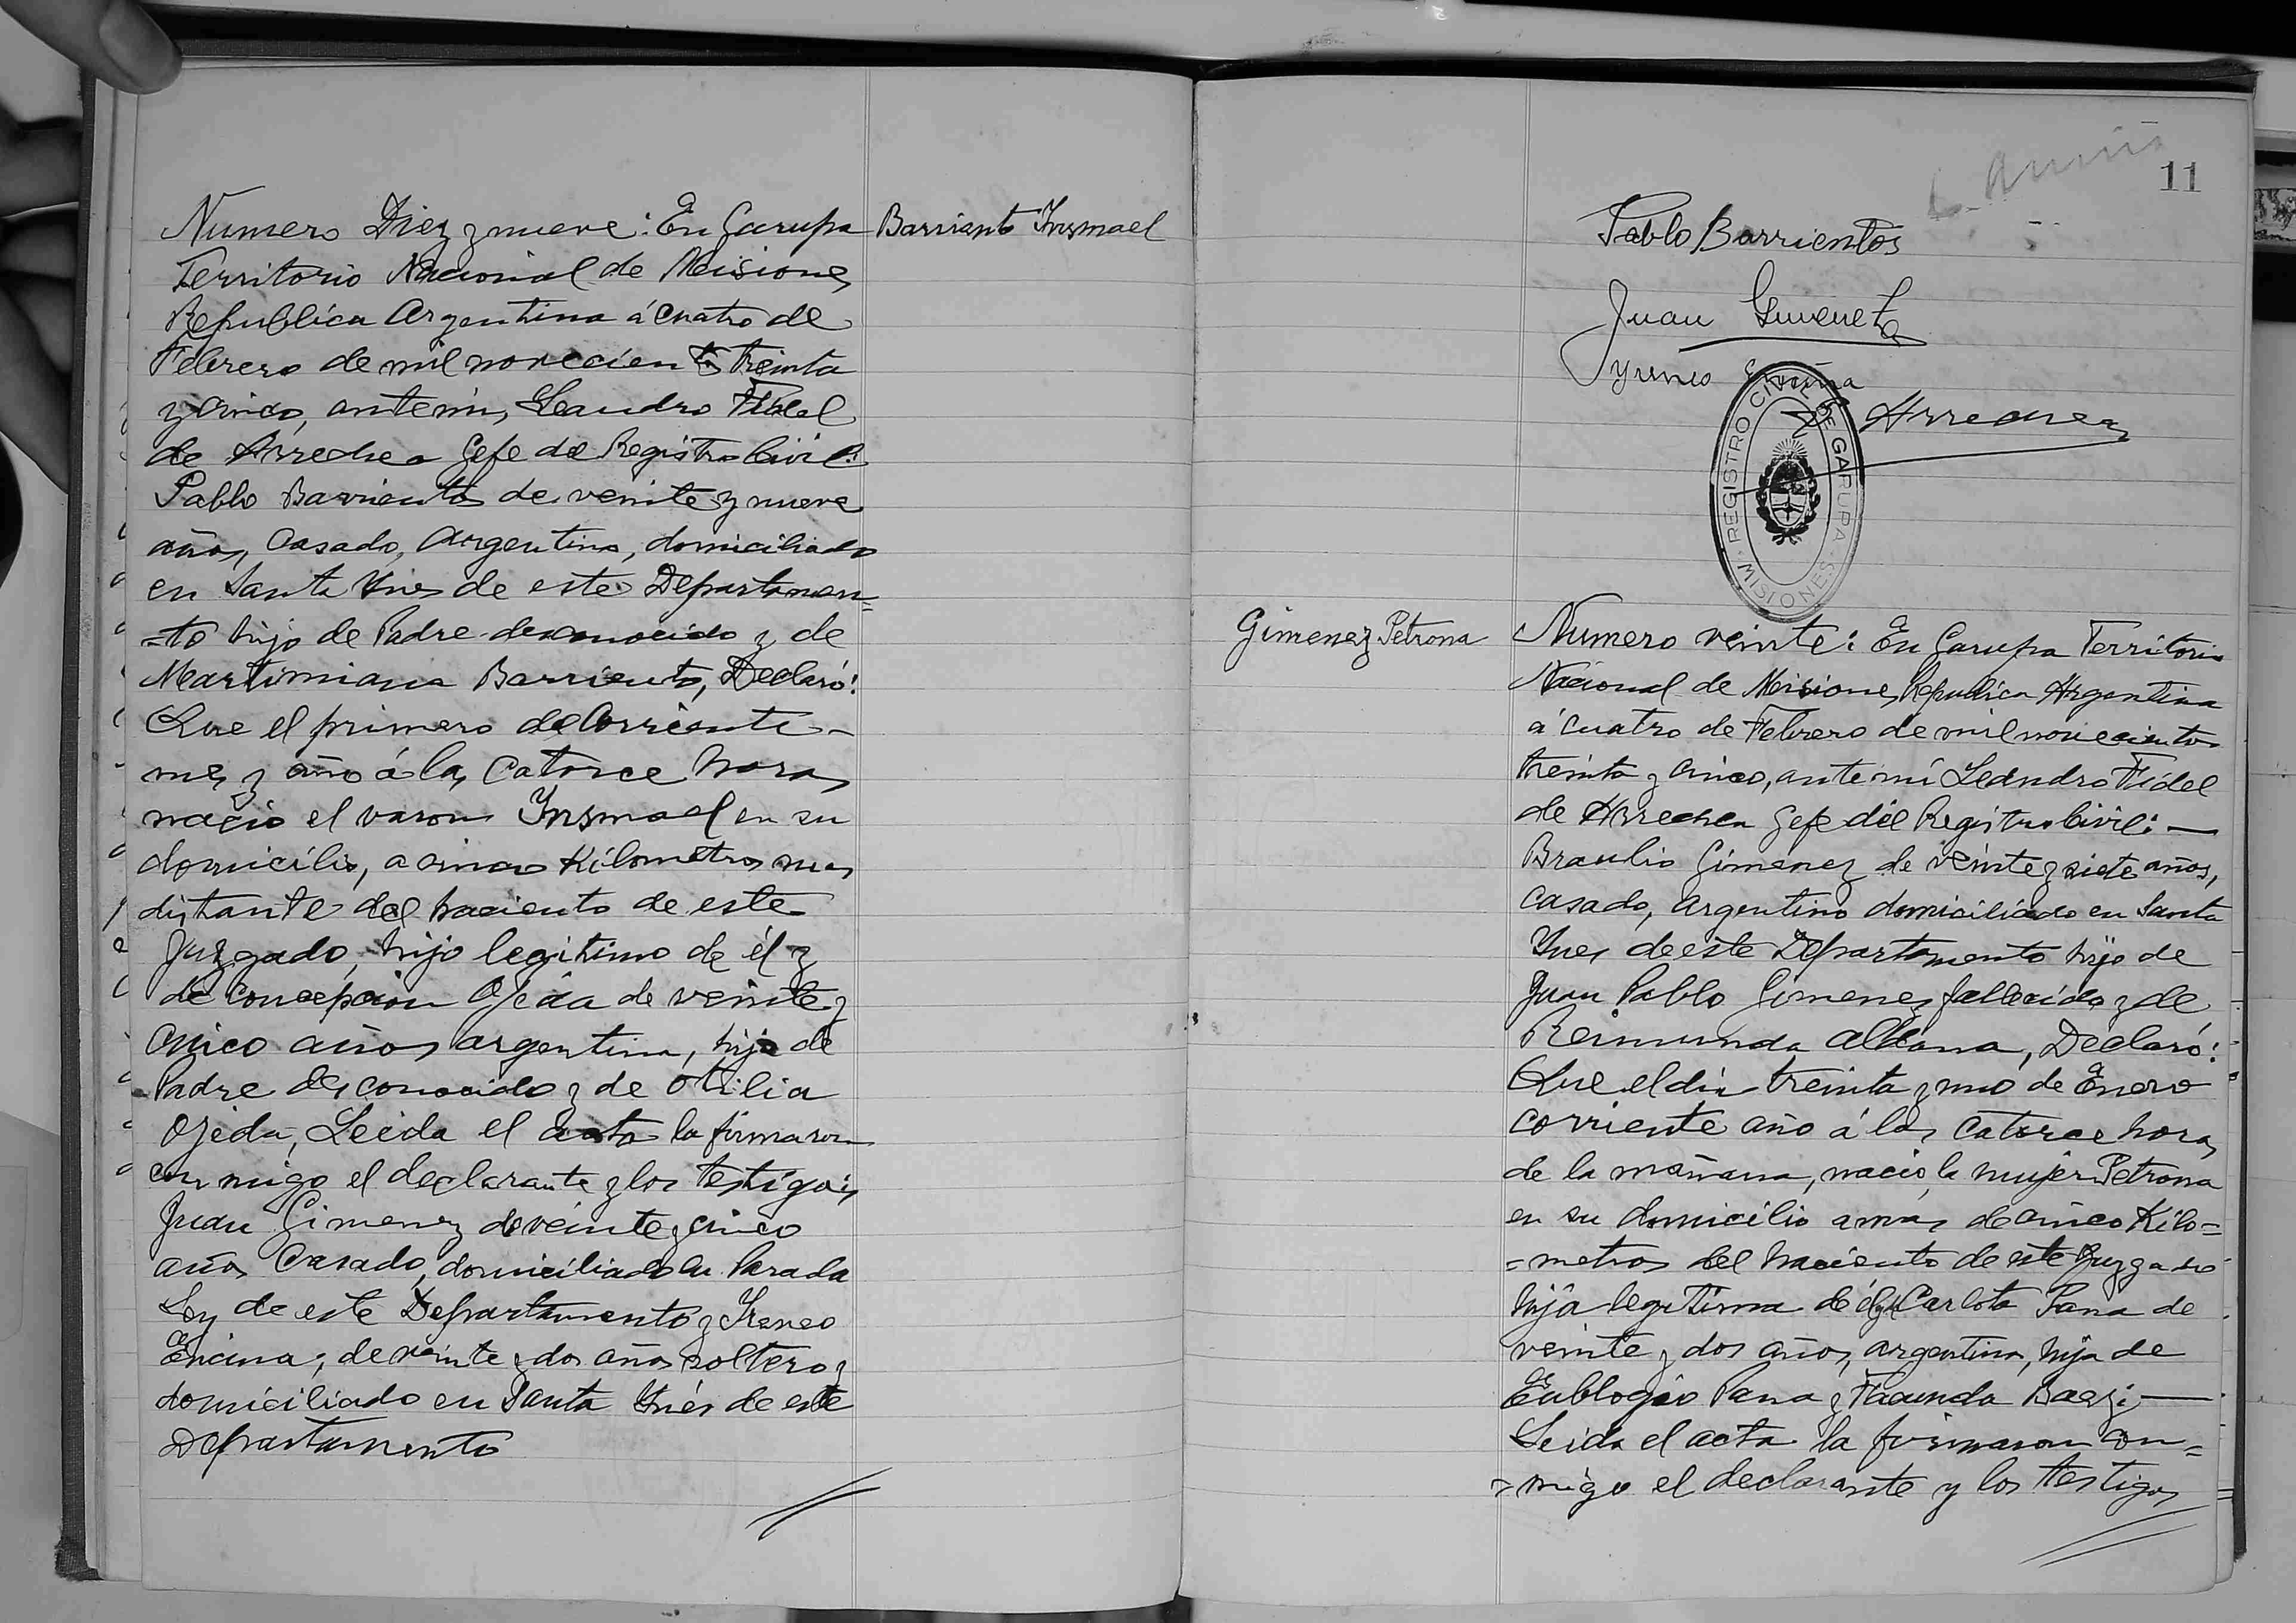 Numero Diez y nueve: En Garupa
Barriento Ynsmael
Territorio Nacional de Misiones
Republica Argentina á cuatro de
Febrero de mil novecientos treinta
y cinco, ante mi, Leandro Fidel
de Arrechea Gefe del Registro Civil:
Pablo Barrientos de veinte y nueve
años, Casado, Argentino, domiciliado
en Santa Ynes de este Departamen=
=to hijo de Padre desconocido y de
Martimiana Barrientos, Declaró:
Que el primero del Corriente
mes y año á las Catorce horas
nació el varon Ynsmael en su
domicilio, a cinco Kilometros mas
distante del haciento de este
Juzgado, hijo legitimo de él y
de Concepcion Ojeda de veinte y
cinco años argentina, hija de
Padre desconocido y de Otilia
Ojeda, Leida el acta la firmaron
con migo el declarante y los testigos
Juan Gimenez de veinte y cinco
años Casado, domiciliado en Parada
Ley de este Departamento y Yreneo
Encina, de veinte y dos años soltero y
domiciliado en Santa Ynés de este
Departamento
11
Pablo Barrientos
Juan Gimenez
Yreneo Encina
Arrechea
REGISTRO CIVIL DE GARUPA
MISIONES
Gimenez Petrona
Numero veinte: En Garupa Territorio
Nacional de Misiones, Republica Argentina
á cuatro de Febrero de mil novecientos
treinta y cinco, ante mí Leandro Fidel
de Arrechea Gefe del Registro Civil: —
Braulio Gimenez de veinte y siete años,
Casado, argentino domiciliado en Santa
Ynes de este Departamento hijo de
Juan Pablo Gimenez fallecido y de
Reimunda Aldana, Declaró:
Que el dia treinta y uno de Enero
corriente año á las Catorce horas
de la mañana, nacio la mujer Petrona
en su domicilio a mas de cinco Kilo=
=metros del haciento de este Juzgado
hija legitima de él y de Carlota Pana de
veinte y dos años, argentina, hija de
Eublogio Pana y Facunda Baez: —
Leida el acta la firmaron con=
=migo el declarante y los testigos